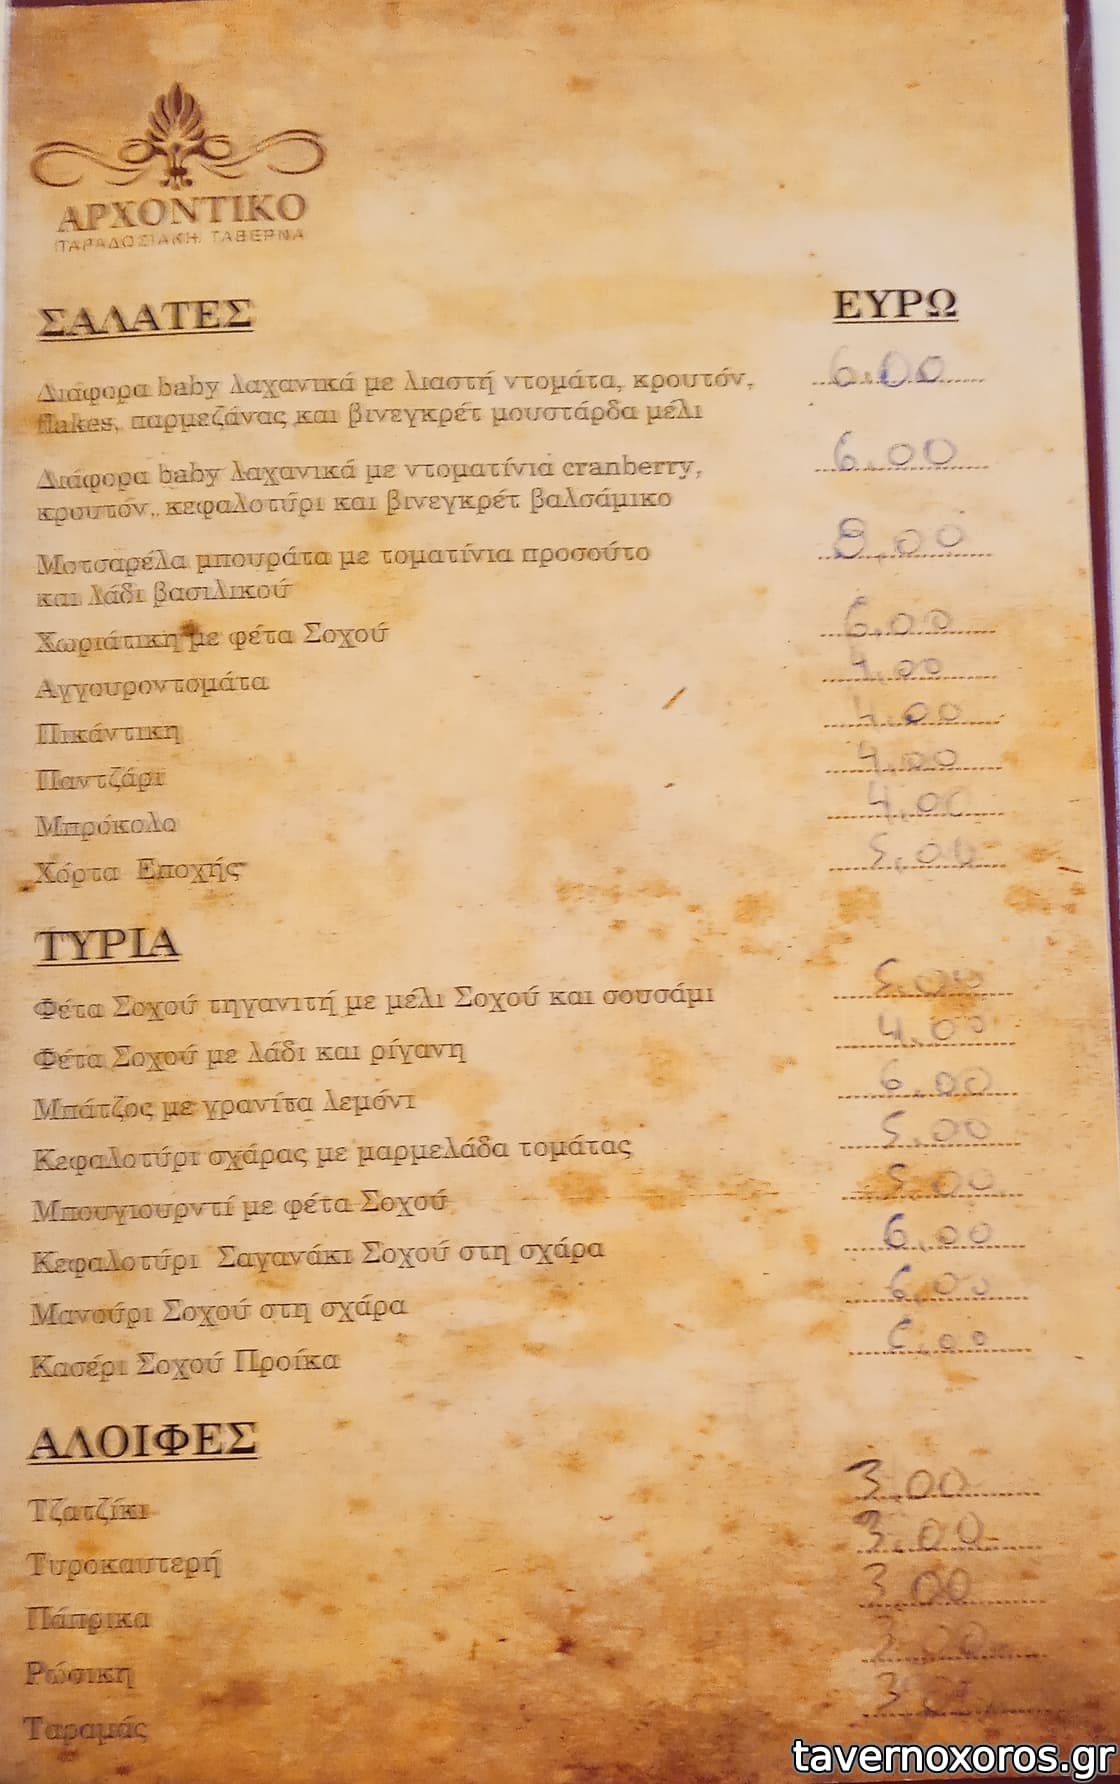 ΑΡΧΟΝΤΙΚΟ
ΠΑΡΑΔΟΣΙΑΚΗ ΤΑΒΕΡΝΑ
ΣΑΛΑΤΕΣ ΕΥΡΩ
Διάφορα baby λαχανικά με λιαστή ντομάτα, κρουτόν, 6.00
flakes, παρμεζάνας και βινεγκρέτ μουστάρδα μέλι
Διάφορα baby λαχανικά με ντοματίνια cranberry, 6.00
κρουτόν, κεφαλοτύρι και βινεγκρέτ βαλσάμικο
Μοτσαρέλα μπουράτα με τοματίνια προσούτο 8.00
και λάδι βασιλικού
Χωριάτικη με φέτα Σοχού 6.00
Αγγουροντομάτα 4.00
Πικάντικη 4.00
Παντζάρι 4.00
Μπρόκολο 4.00
Χόρτα Εποχής 5.00
ΤΥΡΙΑ
Φέτα Σοχού τηγανιτή με μέλι Σοχού και σουσάμι 5.00
Φέτα Σοχού με λάδι και ρίγανη 4.00
Μπάτζος με γρανίτα λεμόνι 6.00
Κεφαλοτύρι σχάρας με μαρμελάδα τομάτας 5.00
Μπουγιουρντί με φέτα Σοχού 5.00
Κεφαλοτύρι Σαγανάκι Σοχού στη σχάρα 6.00
Μανούρι Σοχού στη σχάρα 6.00
Κασέρι Σοχού Προίκα
ΑΛΟΙΦΕΣ
Τζατζίκι 3.00
Τυροκαυτερή 3.00
Πάπρικα 3.00
Ρώσικη 3.00
Ταραμάς
tavernoxoros.gr